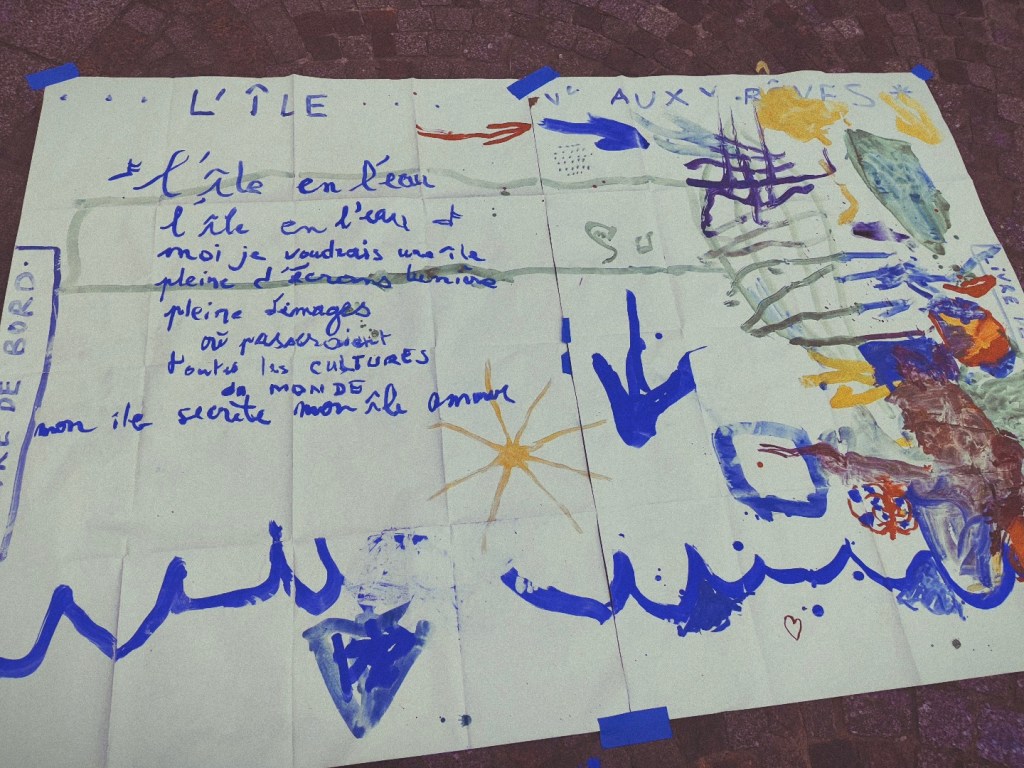 L'ÎLE AUX RÊVES
l'île en l'eau
l'île en l'eau
moi je voudrais une île
pleine d'écrans lumière
pleine d'images
où passeraient
toutes les CULTURES
du MONDE
mon île secrète mon île amour
DE BORD.